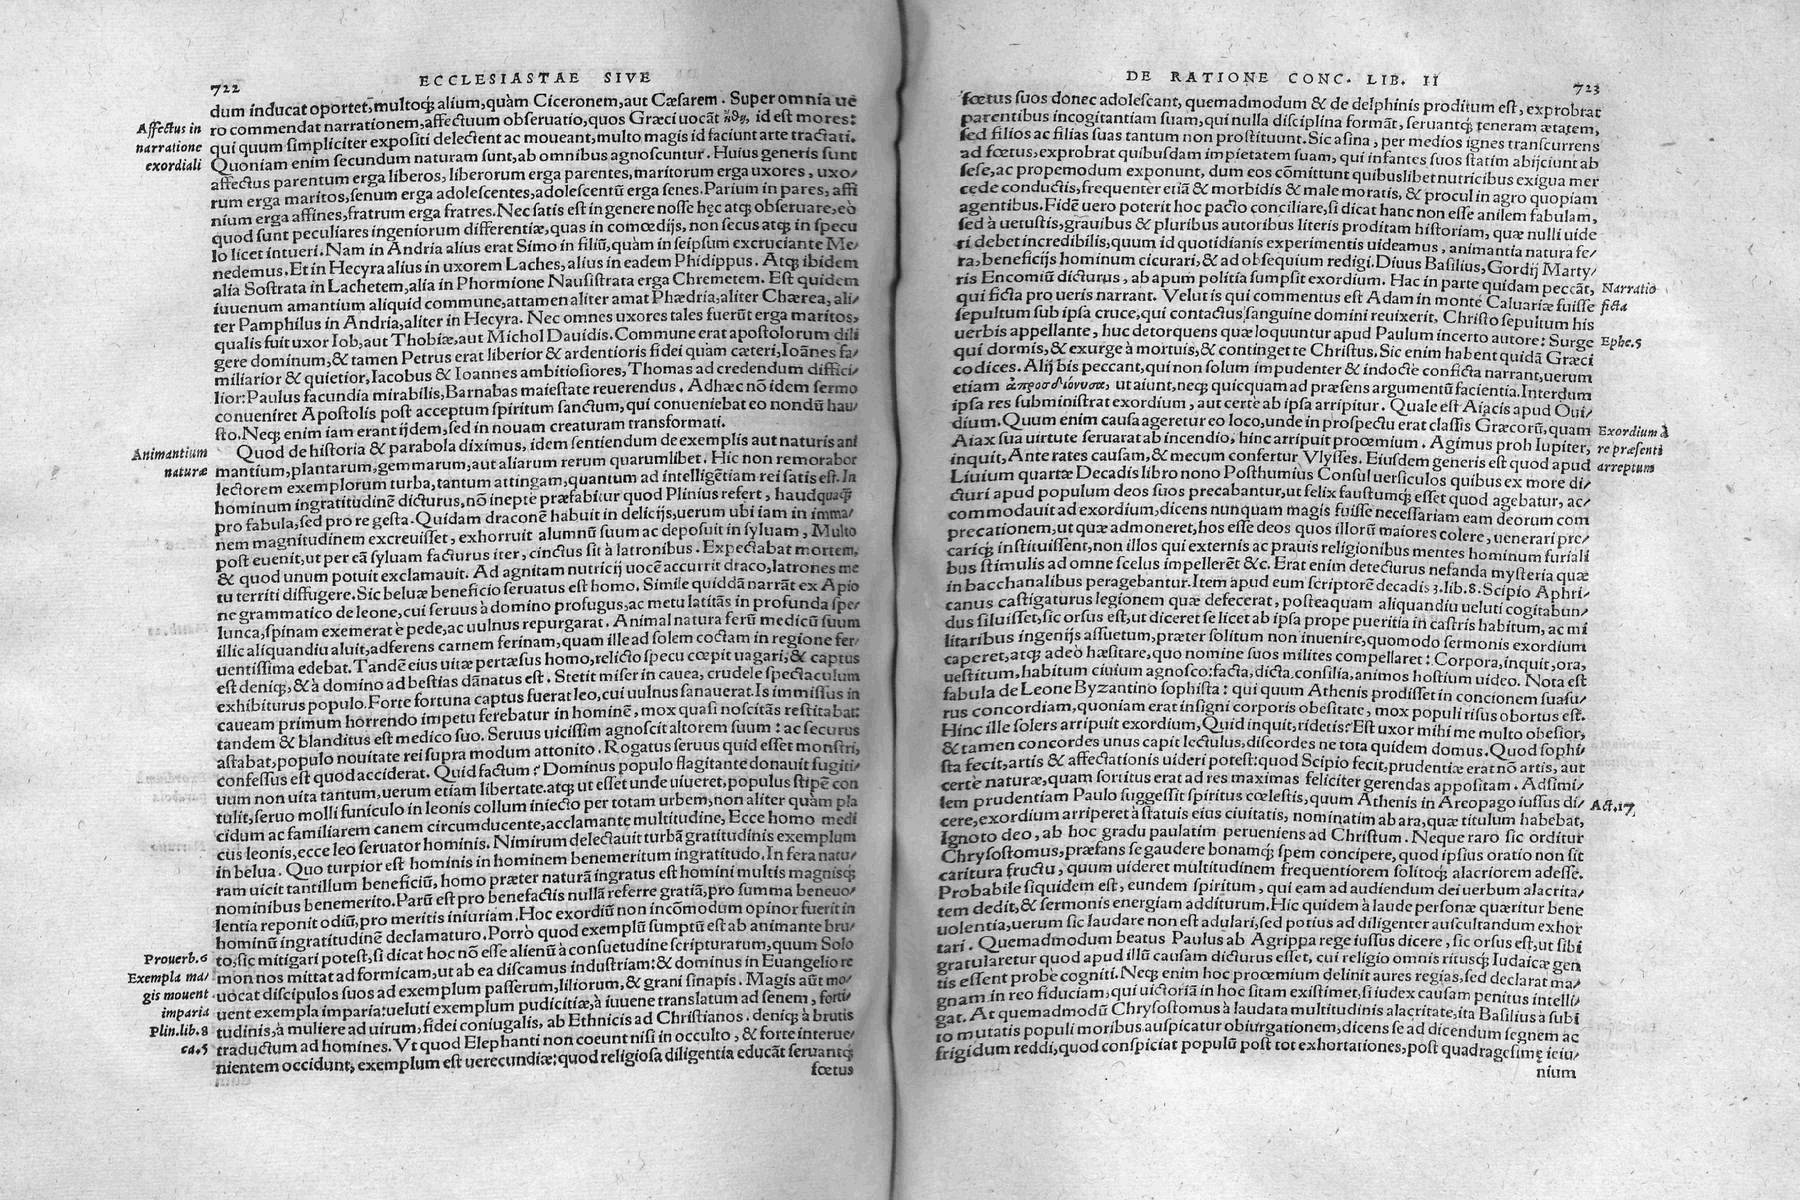 722
ECCLESIASTAE SIVE
dum inducat oportet, multoq́; alium, quàm Ciceronem, aut Cæsarem. Super omnia ue
Affectus in
ro commendat narrationem, affectuum obseruatio, quos Græci uocāt ἤθη, id est mores:
narratione
qui quum simpliciter expositi delectent ac moueant, multo magis id faciunt arte tractati.
exordiali
Quoniam enim secundum naturam sunt, ab omnibus agnoscuntur. Huius generis sunt
affectus parentum erga liberos, liberorum erga parentes, maritorum erga uxores, uxo/
rum erga maritos, senum erga adolescentes, adolescentū erga senes. Parium in pares, affi
nium erga affines, fratrum erga fratres. Nec satis est in genere nosse hęc atq; obseruare, eò
quod sunt peculiares ingeniorum differentiæ, quas in comœdijs, non secus atq; in specu
lo licet intueri. Nam in Andria alius erat Simo in filiū, quàm in seipsum excruciante Me/
nedemus. Et in Hecyra alius in uxorem Laches, alius in eadem Phidippus. Atq; ibidem
alia Sostrata in Lachetem, alia in Phormione Nausistrata erga Chremetem. Est quidem
iuuenum amantium aliquid commune, attamen aliter amat Phædria, aliter Chærea, ali/
ter Pamphilus in Andria, aliter in Hecyra. Nec omnes uxores tales fuerūt erga maritos,
qualis fuit uxor Iob, aut Thobiæ, aut Michol Dauidis. Commune erat apostolorum dili
gere dominum, & tamen Petrus erat liberior & ardentioris fidei quàm cæteri, Ioānes fa/
miliarior & quietior, Iacobus & Ioannes ambitiosiores, Thomas ad credendum diffici/
lior: Paulus facundia mirabilis, Barnabas maiestate reuerendus. Adhæc nō idem sermo
conueniret Apostolis post acceptum spiritum sanctum, qui conueniebat eo nondū hau/
sto. Neq; enim iam erant ijdem, sed in nouam creaturam transformati.
Animantium
Quod de historia & parabola diximus, idem sentiendum de exemplis aut naturis ani
naturæ
mantium, plantarum, gemmarum, aut aliarum rerum quarumlibet. Hic non remorabor
lectorem exemplorum turba, tantum attingam, quantum ad intelligētiam rei satis est. In
hominum ingratitudinē dicturus, nō inepte præfabitur quod Plinius refert, haudquaq̄
pro fabula, sed pro re gesta. Quidam draconē habuit in delicijs, uerum ubi iam in imma/
nem magnitudinem excreuisset, exhorruit alumnū suum ac deposuit in syluam, Multo
post euenit, ut per eā syluam facturus iter, cinctus sit à latronibus. Expectabat mortem,
& quod unum potuit exclamauit. Ad agnitam nutricij uocē accurrit draco, latrones me
tu territi diffugere. Sic beluæ beneficio seruatus est homo. Simile quiddā narrāt ex Apio
ne grammatico de leone, cui seruus à domino profugus, ac metu latitās in profunda spe/
lunca, spinam exemerat è pede, ac uulnus repurgarat. Animal natura ferū medicū suum
illic aliquandiu aluit, adferens carnem ferinam, quam ille ad solem coctam in regione fer/
uentissima edebat. Tandē eius uitæ pertæsus homo, relicto specu cœpit uagari, & captus
est deniq;, & à domino ad bestias dānatus est. Stetit miser in cauea, crudele spectaculum
exhibiturus populo. Forte fortuna captus fuerat leo, cui uulnus sanauerat. Is immissus in
caueam primum horrendo impetu ferebatur in hominē, mox quasi noscitās restitabat:
tandem & blanditus est medico suo. Seruus uicissim agnoscit altorem suum: ac securus
astabat, populo nouitate rei supra modum attonito. Rogatus seruus quid esset monstri,
confessus est quod acciderat. Quid factum? Dominus populo flagitante donauit fugiti/
uum non uita tantum, uerum etiam libertate. atq; ut esset unde uiueret, populus stipē con
tulit, seruo molli funiculo in leonis collum iniecto per totam urbem, non aliter quàm pla
cidum ac familiarem canem circumducente, acclamante multitudine, Ecce homo medi
cus leonis, ecce leo seruator hominis. Nimirum delectauit turbā gratitudinis exemplum
in belua. Quo turpior est hominis in hominem benemeritum ingratitudo. In fera natu/
ram uicit tantillum beneficiū, homo præter naturā ingratus est homini multis magnisq́;
nominibus benemerito. Parū est pro benefactis nullā referre gratiā, pro summa beneuo/
lentia reponit odiū, pro meritis iniuriam. Hoc exordiū non incōmodum opinor fuerit in
hominū ingratitudinē declamaturo. Porrò quod exemplū sumptū est ab animante bru/
Prouerb.6
to, sic mitigari potest, si dicat hoc nō esse alienū à consuetudine scripturarum, quum Solo
Exempla ma/
mon nos mittat ad formicam, ut ab ea discamus industriam: & dominus in Euangelio re
gis mouent
uocat discipulos suos ad exemplum passerum, liliorum, & grani sinapis. Magis aūt mo/
imparia
uent exempla imparia: ueluti exemplum pudicitiæ, à iuuene translatum ad senem, forti/
Plin.lib.8
tudinis, à muliere ad uirum, fidei coniugalis, ab Ethnicis ad Christianos. deniq; à brutis
ca.5
traductum ad homines. Vt quod Elephanti non coeunt nisi in occulto, & forte interue/
nientem occidunt, exemplum est uerecundiæ: quod religiosa diligentia educāt seruantq́;
fœtus
DE RATIONE CONC. LIB. II
723
fœtus suos donec adolescant, quemadmodum & de delphinis proditum est, exprobrat
parentibus incogitantiam suam, qui nulla disciplina formāt, seruantq́; teneram ætatem,
sed filios ac filias suas tantum non prostituunt. Sic asina, per medios ignes transcurrens
ad fœtus, exprobrat quibusdam impietatem suam, qui infantes suos statim abijciunt ab
sese, ac propemodum exponunt, dum eos cōmittunt quibuslibet nutricibus exigua mer
cede conductis, frequenter etiā & morbidis & male moratis, & procul in agro quopiam
agentibus. Fidē uero poterit hoc pacto conciliare, si dicat hanc non esse anilem fabulam,
sed à uetustis, grauibus & pluribus autoribus literis proditam historiam, quæ nulli uide
ri debet incredibilis, quum id quotidianis experimentis uideamus, animantia natura fe/
ra, beneficijs hominum cicurari, & ad obsequium redigi. Diuus Basilius, Gordij Marty/
ris Encomiū dicturus, ab apum politia sumpsit exordium. Hac in parte quidam peccāt,
Narratio
qui ficta pro ueris narrant. Velut is qui commentus est Adam in monte Caluariæ fuisse
ficta
sepultum sub ipsa cruce, qui contactus sanguine domini reuixerit, Christo sepultum his
uerbis appellante, huc detorquens quæ loquuntur apud Paulum incerto autore: Surge
Ephe.5
qui dormis, & exurge à mortuis, & continget te Christus. Sic enim habent quidā Græci
codices. Alij bis peccant, qui non solum impudenter & indocte conficta narrant, uerum
etiam ἀπροσδιόνυσα, ut aiunt, neq; quicquam ad præsens argumentū facientia. Interdum
ipsa res subministrat exordium, aut certè ab ipsa arripitur. Quale est Aiacis apud Oui/
dium. Quum enim causa ageretur eo loco, unde in prospectu erat classis Græcorū, quam
Exordium à
Aiax sua uirtute seruarat ab incendio, hinc arripuit procemium. Agimus proh Iupiter,
re præsenti
inquit, Ante rates causam, & mecum confertur Vlysses. Eiusdem generis est quod apud
arreptum
Liuium quartæ Decadis libro nono Posthumius Consul uersiculos quibus ex more di/
cturi apud populum deos suos precabantur, ut felix faustumq́; esset quod agebatur, ac/
commodauit ad exordium, dicens nunquam magis fuisse necessariam eam deorum com
precationem, ut quæ admoneret, hos esse deos quos illorū maiores colere, uenerari pre/
cariq́; instituissent, non illos qui externis ac prauis religionibus mentes hominum furiali
bus stimulis ad omne scelus impellerēt &c. Erat enim detecturus nefanda mysteria quæ
in bacchanalibus peragebantur. Item apud eum scriptorē decadis 3. lib. 8. Scipio Aphri/
canus castigaturus legionem quæ defecerat, posteaquam aliquandiu ueluti cogitabun/
dus siluisset, sic orsus est, ut diceret se licet ab ipsa prope pueritia in castris habitum, ac mi
litaribus ingenijs assuetum, præter solitum non inuenire, quomodo sermonis exordium
caperet, atq; adeò hæsitare, quo nomine suos milites compellaret: Corpora, inquit, ora,
uestitum, habitum ciuium agnosco: facta, dicta, consilia, animos hostium uideo. Nota est
fabula de Leone Byzantino sophista: qui quum Athenis prodisset in concionem suasu/
rus concordiam, quoniam erat insigni corporis obesitate, mox populi risus obortus est.
Hinc ille solers arripuit exordium, Quid inquit, ridetis? Est uxor mihi me multo obesior,
& tamen concordes unus capit lectulus, discordes ne tota quidem domus. Quod sophi/
sta fecit, artis & affectationis uideri potest: quod Scipio fecit, prudentiæ erat nō artis, aut
certè naturæ, quam sortitus erat ad res maximas feliciter gerendas appositam. Adsimi/
lem prudentiam Paulo suggessit spiritus cœlestis, quum Athenis in Areopago iussus di/
Act.17.
cere, exordium arriperet à statuis eius ciuitatis, nominatim ab ara, quæ titulum habebat,
Ignoto deo, ab hoc gradu paulatim perueniens ad Christum. Neque raro sic orditur
Chrysostomus, præfans se gaudere bonamq́; spem concipere, quod ipsius oratio non sit
caritura fructu, quum uideret multitudinem frequentiorem solitoq́; alacriorem adesse.
Probabile siquidem est, eundem spiritum, qui eam ad audiendum dei uerbum alacrita/
tem dedit, & sermonis energiam additurum. Hic quidem à laude personæ quæritur bene
uolentia, uerum sic laudare non est adulari, sed potius ad diligenter auscultandum exhor
tari. Quemadmodum beatus Paulus ab Agrippa rege iussus dicere, sic orsus est, ut sibi
gratularetur quod apud illū causam dicturus esset, cui religio omnis ritusq́; Iudaicæ gen
tis essent probè cogniti. Neq; enim hoc procemium delinit aures regias, sed declarat ma/
gnam in reo fiduciam, qui uictoriā in hoc sitam existimet, si iudex causam penitus intelli/
gat. At quemadmodū Chrysostomus à laudata multitudinis alacritate, ita Basilius à subi
to mutatis populi moribus auspicatur obiurgationem, dicens se ad dicendum segnem ac
frigidum reddi, quod conspiciat populū post tot exhortationes, post quadragesimę ieiu/
nium